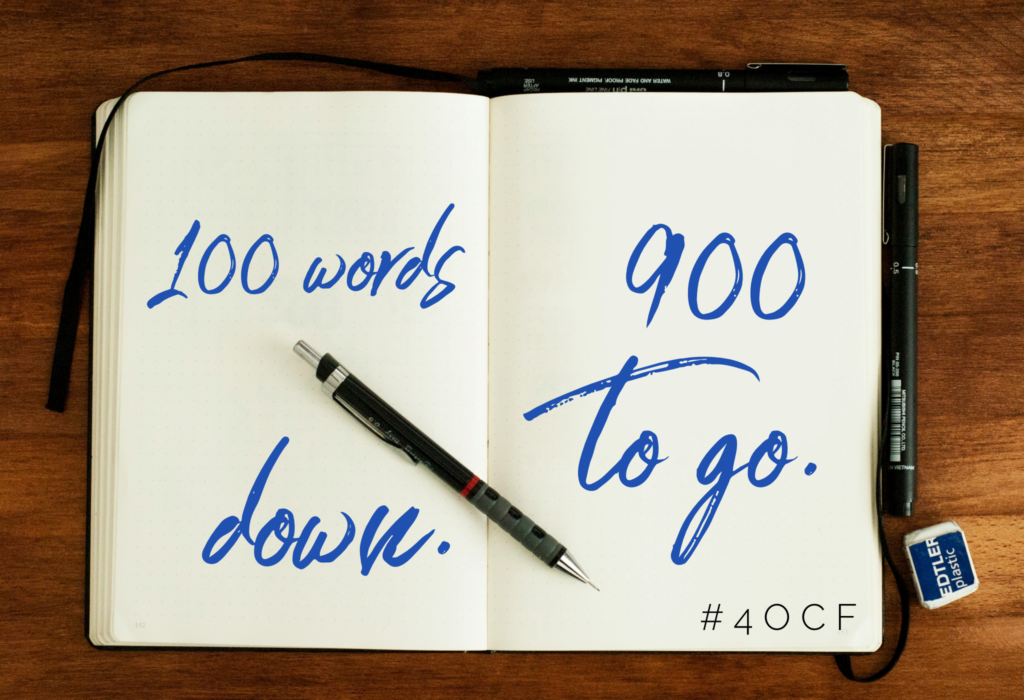 100 words
down.
900
To go.
#4OCF
WATER AND FADE PROOF, PIGMENT INK
0.8
0.5
EDTLER
plastic